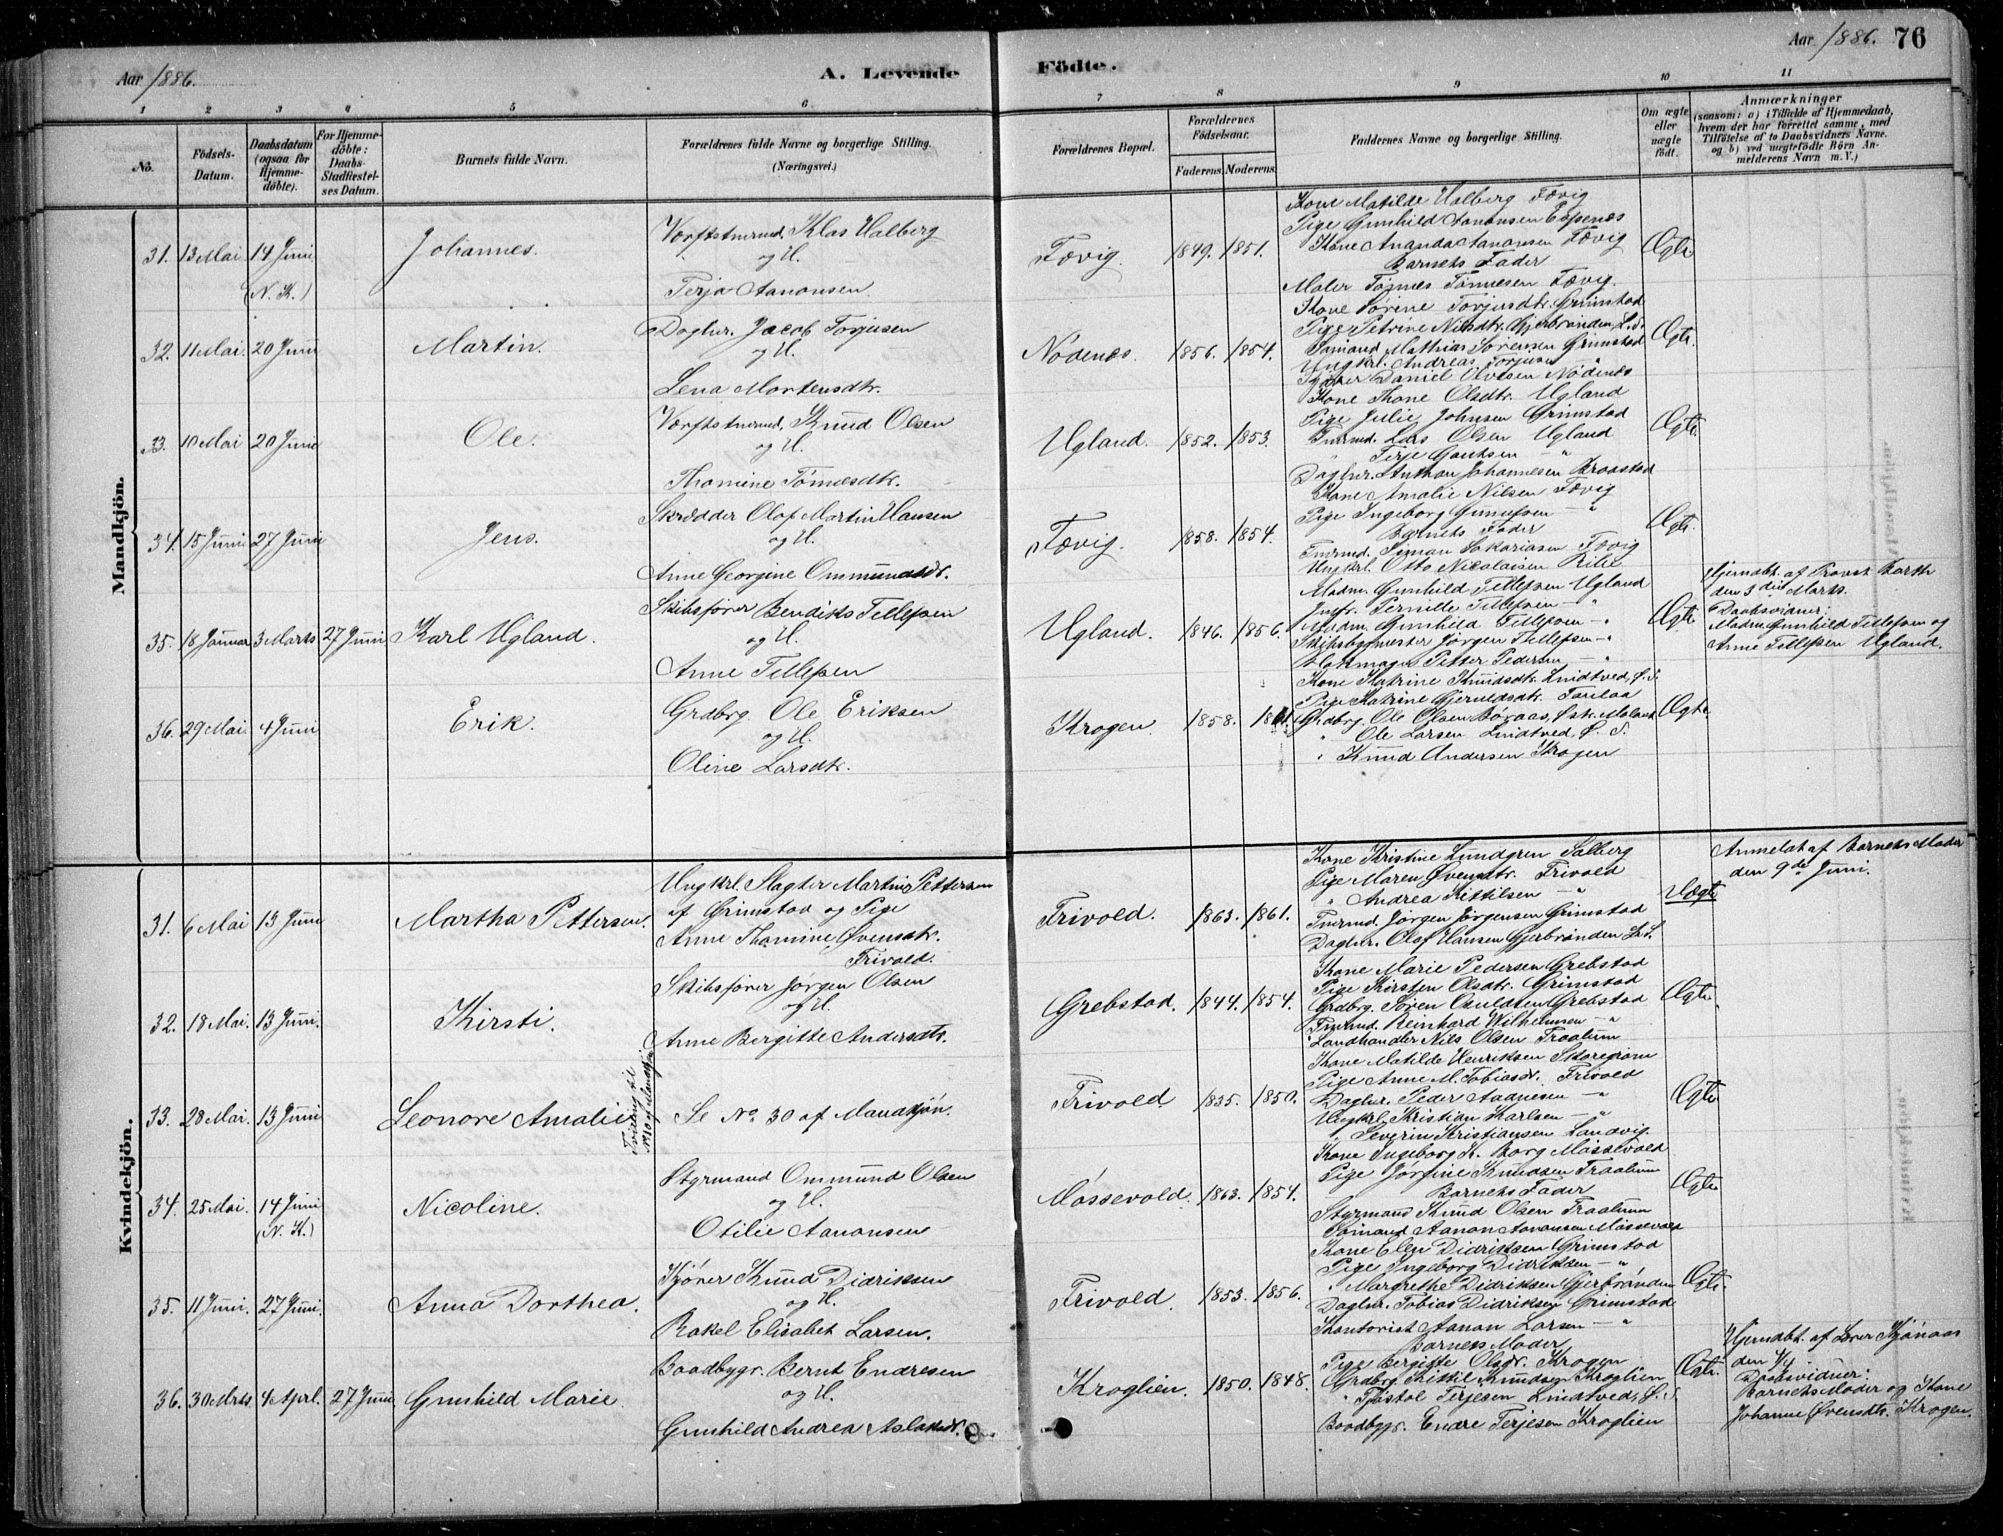 Aar 1886.
A. Levende
Födte.
Aar 1886. 76
1 2 3 4 5 6 7 8 9 10 11
No.
Födsels-Datum.
Daabsdatum (ogsaa for Hjemme-döbte).
For Hjemme-döbte: Daabs-Stadfæstel-ses Datum.
Barnets fulde Navn.
Forældrenes fulde Navne og borgerlige Stilling.
(Næringsvei.)
Forældrenes Bopæl.
Forældrenes Födselsaar.
Faderens. Moderens.
Faddernes Navne og borgerlige Stilling.
Om ægte eller uægte födt.
Anmærkninger
(saasom: a) i Tilfælde af Hjemmedaab, hvem der har forrettet samme, med Tilföielse af to Daabsvidners Navne. og b) ved uægtefödte Börn Anmelderens Navn m. V.)
Mandkjön.
31. 13 Mai 14 Juni (N. K.) Johannes.
Værftstmrmd. Klas Halberg
og H.
Terja Aanonsen
Fævig. 1849. 1851.
Kone Matilde Halberg Fævig
Pige Gunhild Aanonsen Espenes
Kone Ananda Aanonsen Fævig
Barnets Fader
Maler Tønnes Tønnesen Fævig.
Ægte
32. 11 Mai. 20 Juni Martin.
Daglnr. Jacob Torjusen
og H.
Lena Mortensdtr.
Nödenes. 1856. 1854.
Kone Sørine Torjusdtr. Grimstad
Pige Petrine Nilsdtr. Gjerbrønden, L. S.
Sømand Mathias Sørensen Grimstad
Ungkrl. Andreas Torjusen "
Daniel Olvesen Nödenes
Ægte.
33. 10 Mai 20 Juni Ole.
Værftstmrmd. Knud Olsen
og H.
Thomine Tønnesdtr.
Ugland. 1852. 1853.
Kone Thone Olsdtr. Ugland
Pige Julie Johnsen Grimstad
Tmrmd. Lars Olsen Ugland
" Terje Gautsen "
Daglnr. Anthon Johannesen Braastad
Ægte
34. 15 Juni 27 Juni Jens.
Skrædder Olaf Martin Hansen
og H.
Anne Georgine Ommundsdtr.
Fævig. 1858. 1854.
Kone Amalie Nilsen Fævig
Pige Ingeborg Gunufsen "
Barnets Fader
Tmrmd. Simon Sakariasen Fævig
Ungkrl. Otto Nicolaisen Rilie
Ægte.
35. 18 Januar 3 Marts 27 Juni Karl Ugland.
Skibsfører Bendiks Tellefsen
og H.
Anne Tellefsen
Ugland. 1846. 1856.
Madm. Gunhild Tellefsen Ugland
Jnfr. Pernille Tellefsen "
Madm. Gunhild Tellefsen "
Skibsbygmester Jørgen Tellefsen "
Petter Pedersen "
Ægte
Hjemdbt. af Provst Barth
den 3die Marts.
Daabsvidner:
Madm. Gunhild Tellefsen og
Anne Tellefsen Ugland.
36. 29 Mai 4 Juni Erik.
Grdbrg. Ole Eriksen
og H.
Oline Larsdtr.
Krogen. 1858. 1861.
Kone Katrine Knudsdtr. Lindtved, Ø. S.
Pige Katrine Gjeruldsdtr.
Grdbrg. Ole Olsen Børaas, Østr. Moland
" Ole Larsen Lindtved, Ø. S.
" Knud Andersen Krogen
Ægte
Kvindekjön.
31. 6 Mai 13 Juni Martha Pettersen.
Ungkrl. Slagter Martin Pettersen
af Grimstad og Pige
Anne Thomine Øvensdtr.
Frivold.
Frivold. 1863. 1861.
Kone Kristine Lundgren Solberg
Pige Maren Øvensdtr. Frivold
" Andrea Kittilsen "
Tmrmd. Jørgen Jørgensen Grimstad
Daglnr. Olaf Hansen Gjerbrønden L. S.
Uægte
Anmeldt af Barnets Moder
den 9de Juni.
32. 18 Mai. 13 Juni. Kirsti.
Skibsfører Jørgen Olsen
og H.
Anne Bergitte Andersdtr.
Grebstad. 1844. 1854.
Kone Marie Pedersen Grebstad
Pige Kirsten Olsdtr. Grimstad
Grdbrg. Søren Osuldsen Grebstad
Tmrmd. Reinhard Wilhelmsen "
Landhandler Nils Olsen Traalum
Ægte.
33. 28 Mai. 13 Juni Leonore Amalie
Tvilling til No 30 af Mandkjøn
Se No. 30 af Mandkjøn.
Frivold 1835. 1850.
Kone Matilde Henriksen Skaregrøm
Pige Anne M. Tobiasdtr. Frivold
Daglnr. Peder Aadnesen "
Ungkrl. Kristian Karlsen "
" Severin Kristiansen Landvig.
Ægte
34. 25 Mai. 14 Juni (N. K.) Nicoline.
Styrmand Ommund Olsen
og H.
Otilie Aanonsen
Møssevold. 1863. 1854.
Kone Ingeborg K. Borg Møssevold
Pige Jørgine Knudsen Traalum
Barnets Fader
Styrmand Knud Olsen Traalum
Sømand Aanon Aanonsen Møssevold
Ægte
35. 11 Juni. 27 Juni. Anna Dorthea.
Kjører Knud Didriksen
og H.
Rakel Elisabet Larsen.
Frivold. 1853. 1856.
Kone Elen Didriksen Grimstad
Pige Ingeborg Didriksen "
" Margrethe Didriksen Gjerbrønden
Daglnr. Tobias Didriksen Grimstad
Kontorist Aanon Larsen "
Ægte.
36. 30 Mrts. 4 Aprl. 27 Juni Gunhild Marie
Baadbygr. Bernt Endresen
og H.
Gunhild Andrea Aslaksdtr.
Kroglien. 1850. 1848.
Barnets Moder
Pige Bergitte Olsdtr. Krogen
Grdbrg. Kittil Knudsen Kroglien
" Tostal Terjesen Lindtved, Ø. S.
Baadbygr. Endre Terjesen Kroglien
Ægte.
Hjemdbt. af Lærer Kjønaas
den 4/4
Daabsvidner:
Barnets Moder og Kone
Johanne Øvensdtr. Krogen.